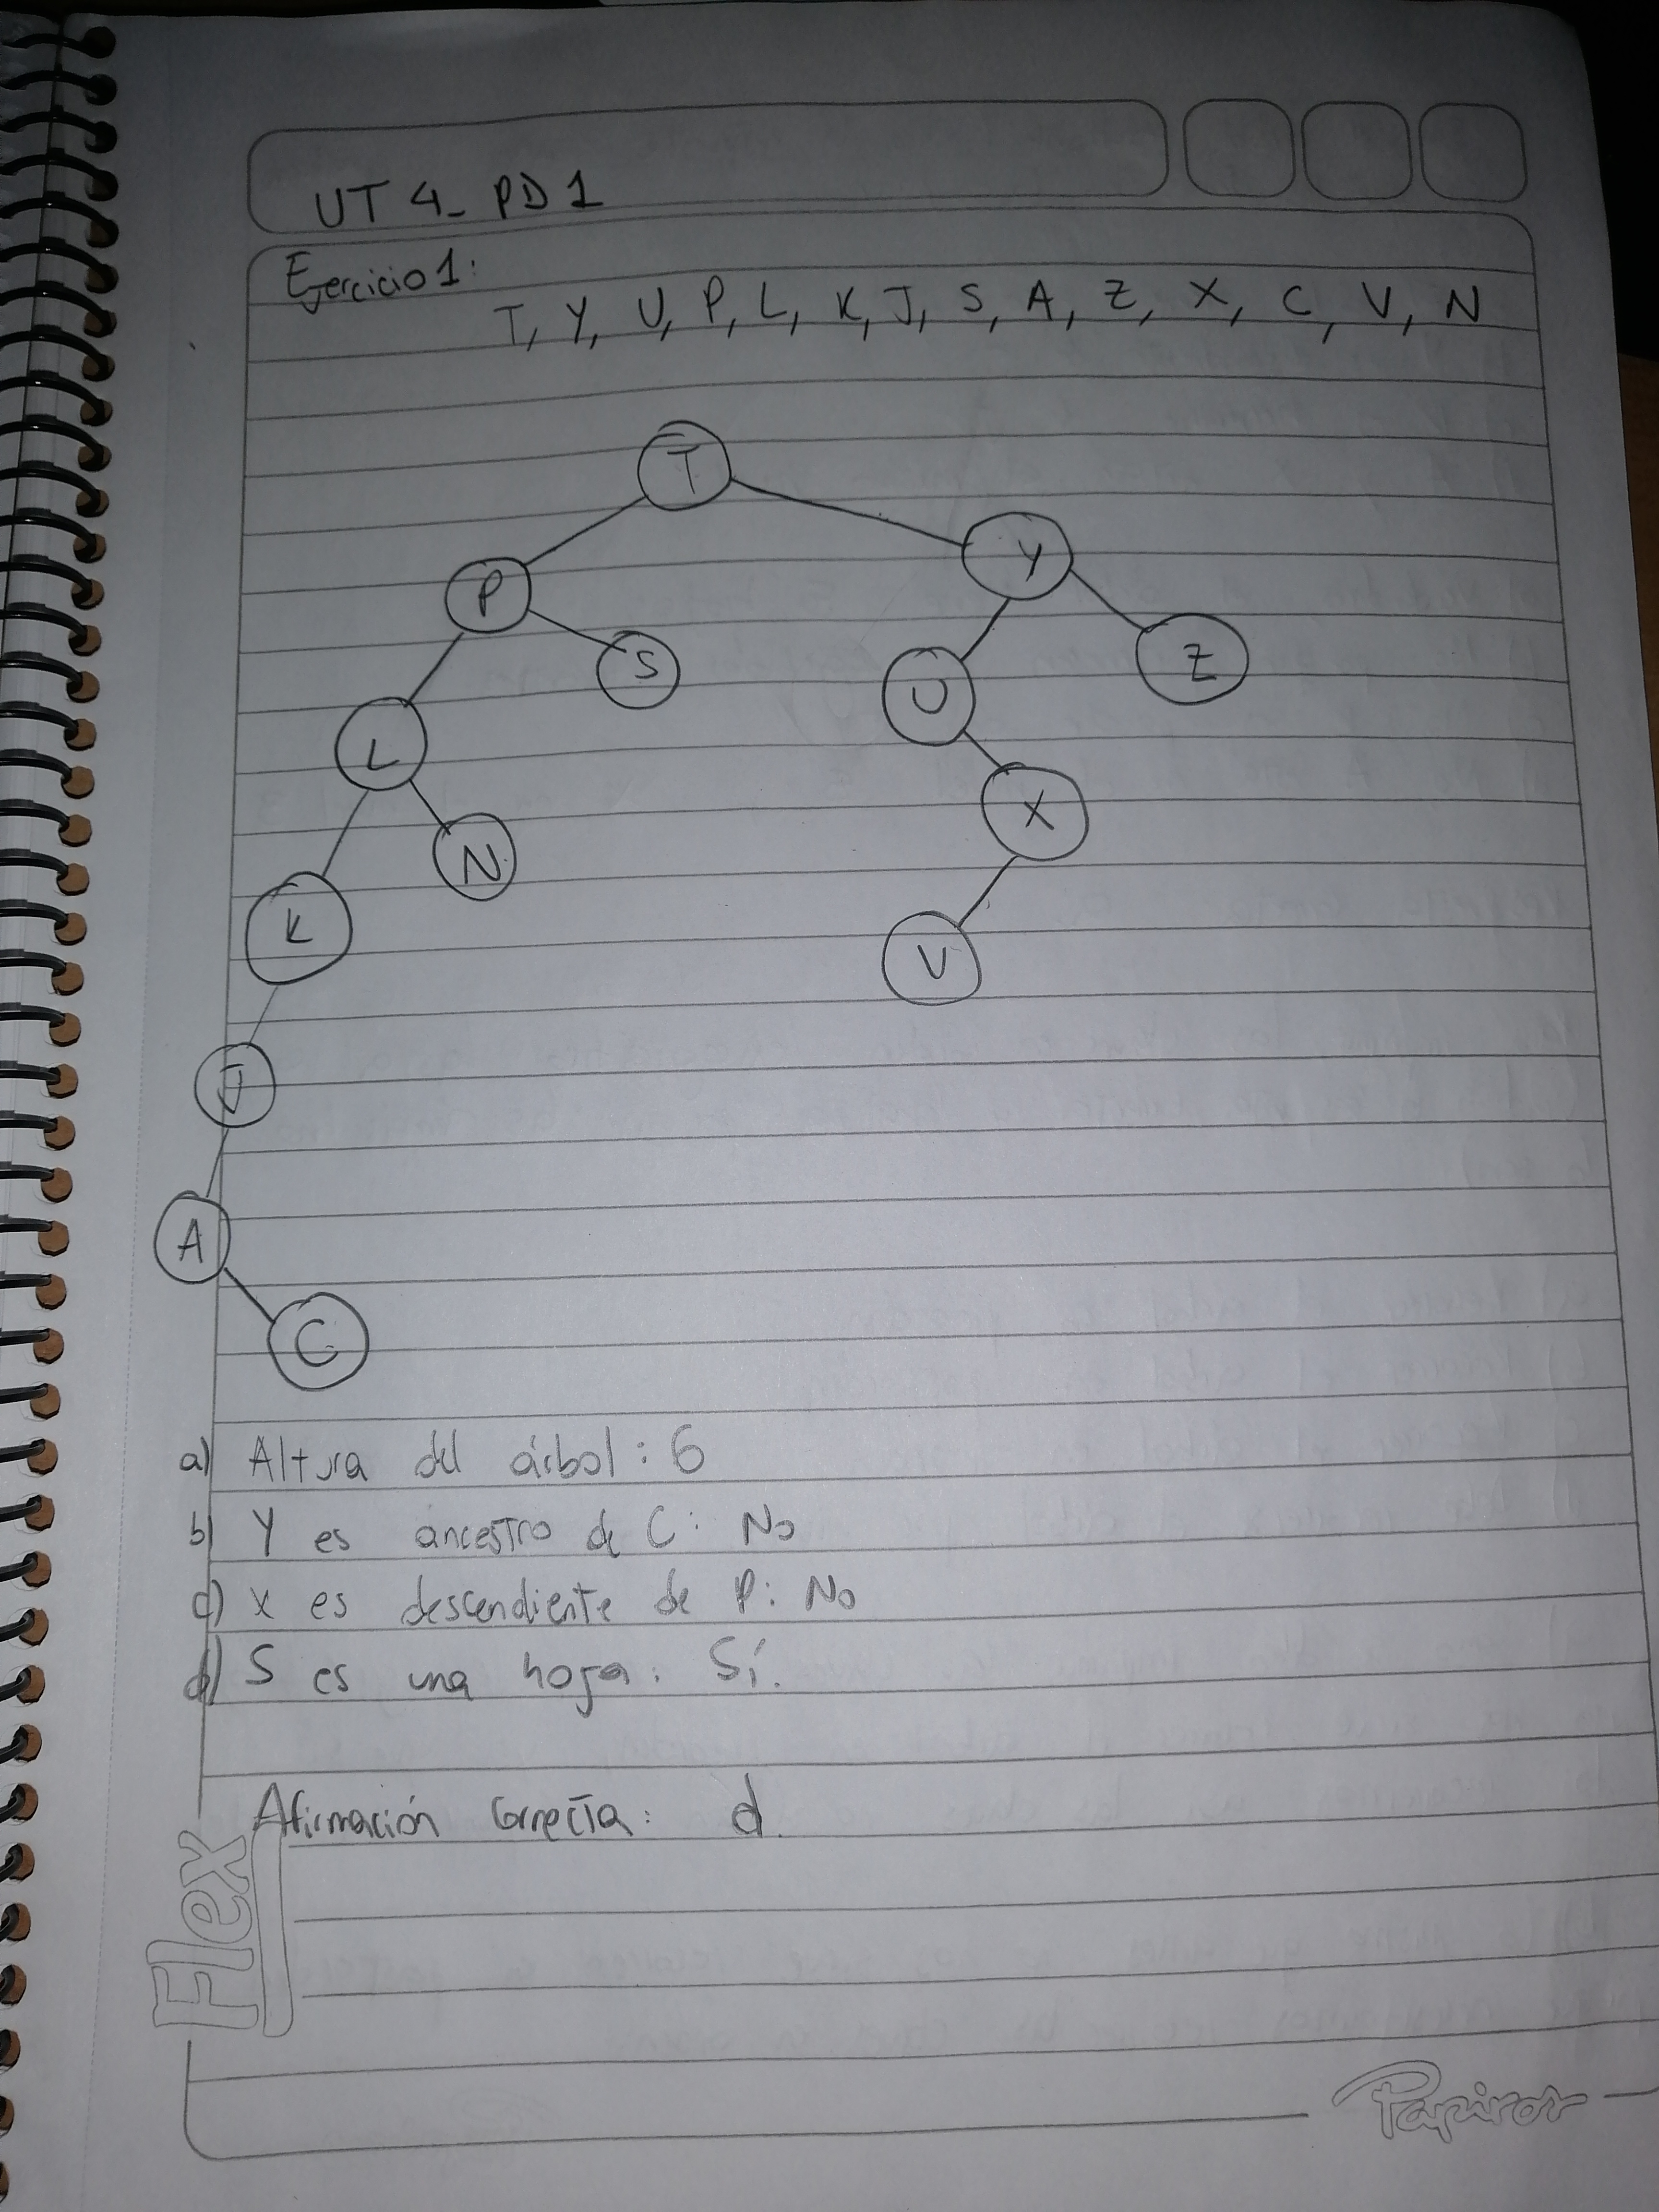 UT 4_ PD 1
Ejercicio 1:
T, Y, U, P, L, K, J, S, A, Z, X, C, V, N
T
P
Y
S
U
Z
L
X
N
K
V
J
A
C
a) Altura del árbol : 6
b) Y es ancestro de C: No
c) X es descendiente de P: No
d) S es una hoja: Sí.
Afirmación correcta: d.
Flex
Papiros